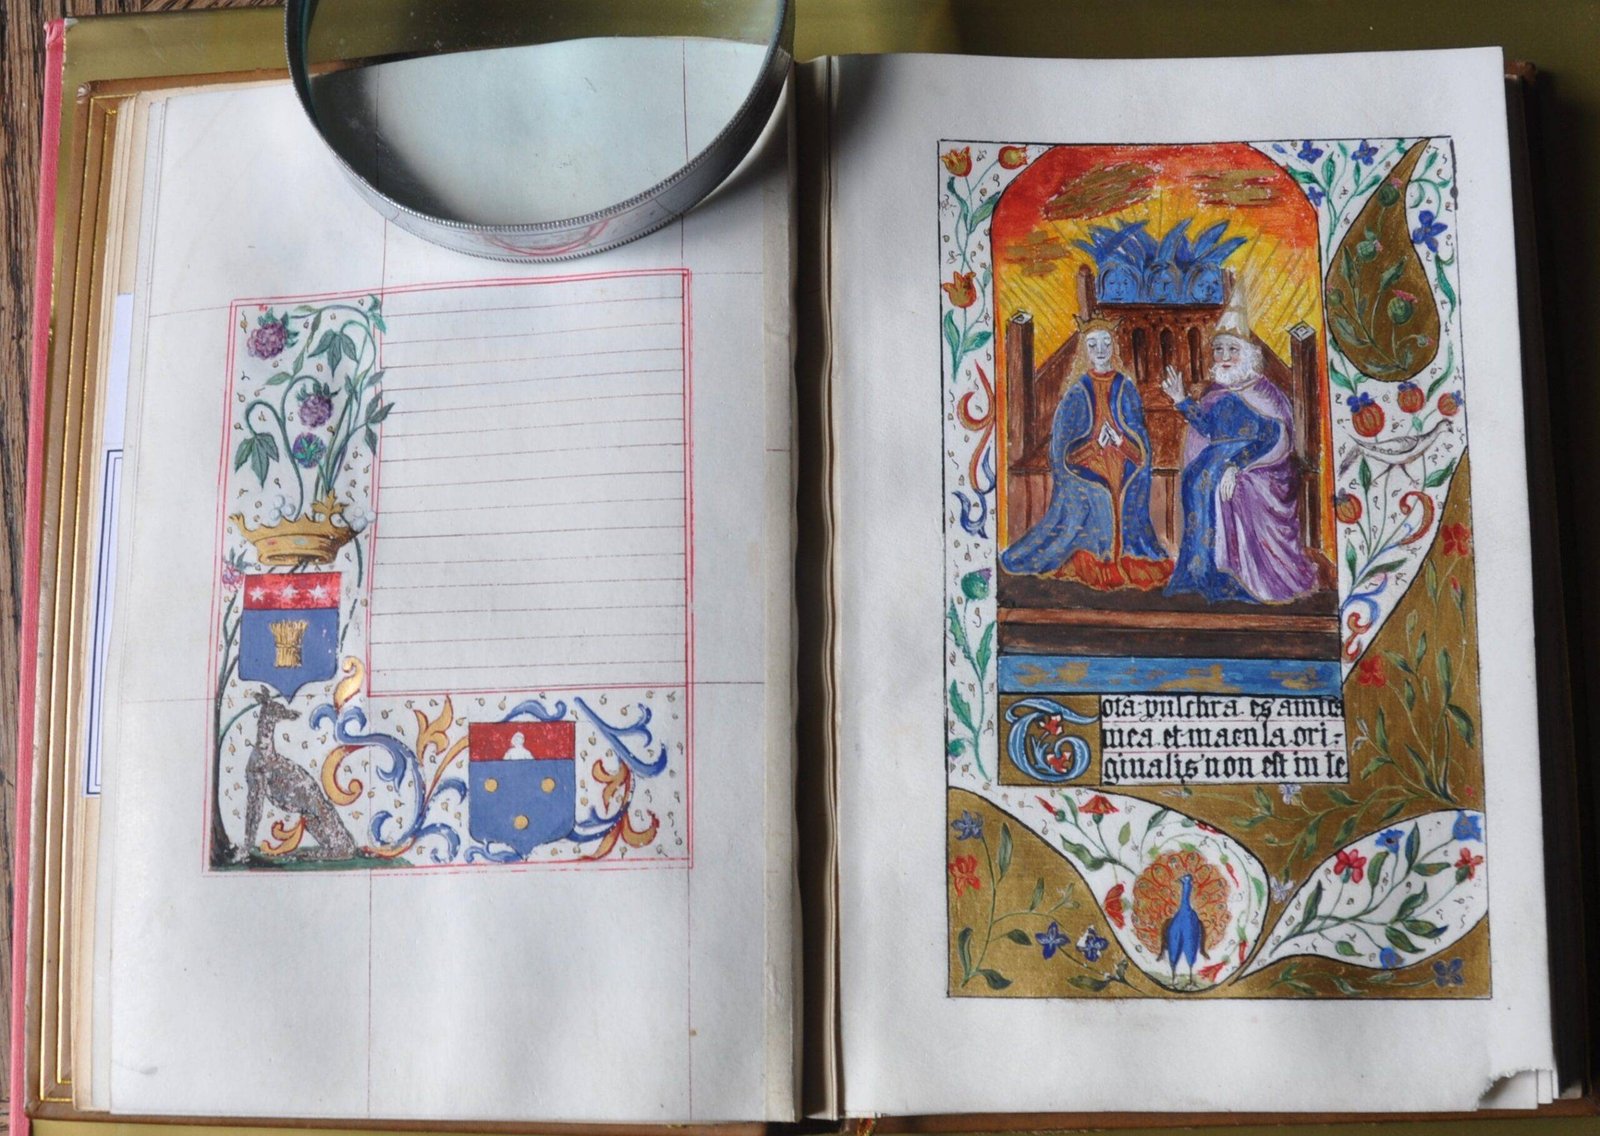 Tota pulchra es amica
mea et macula ori-
ginalis non est in te